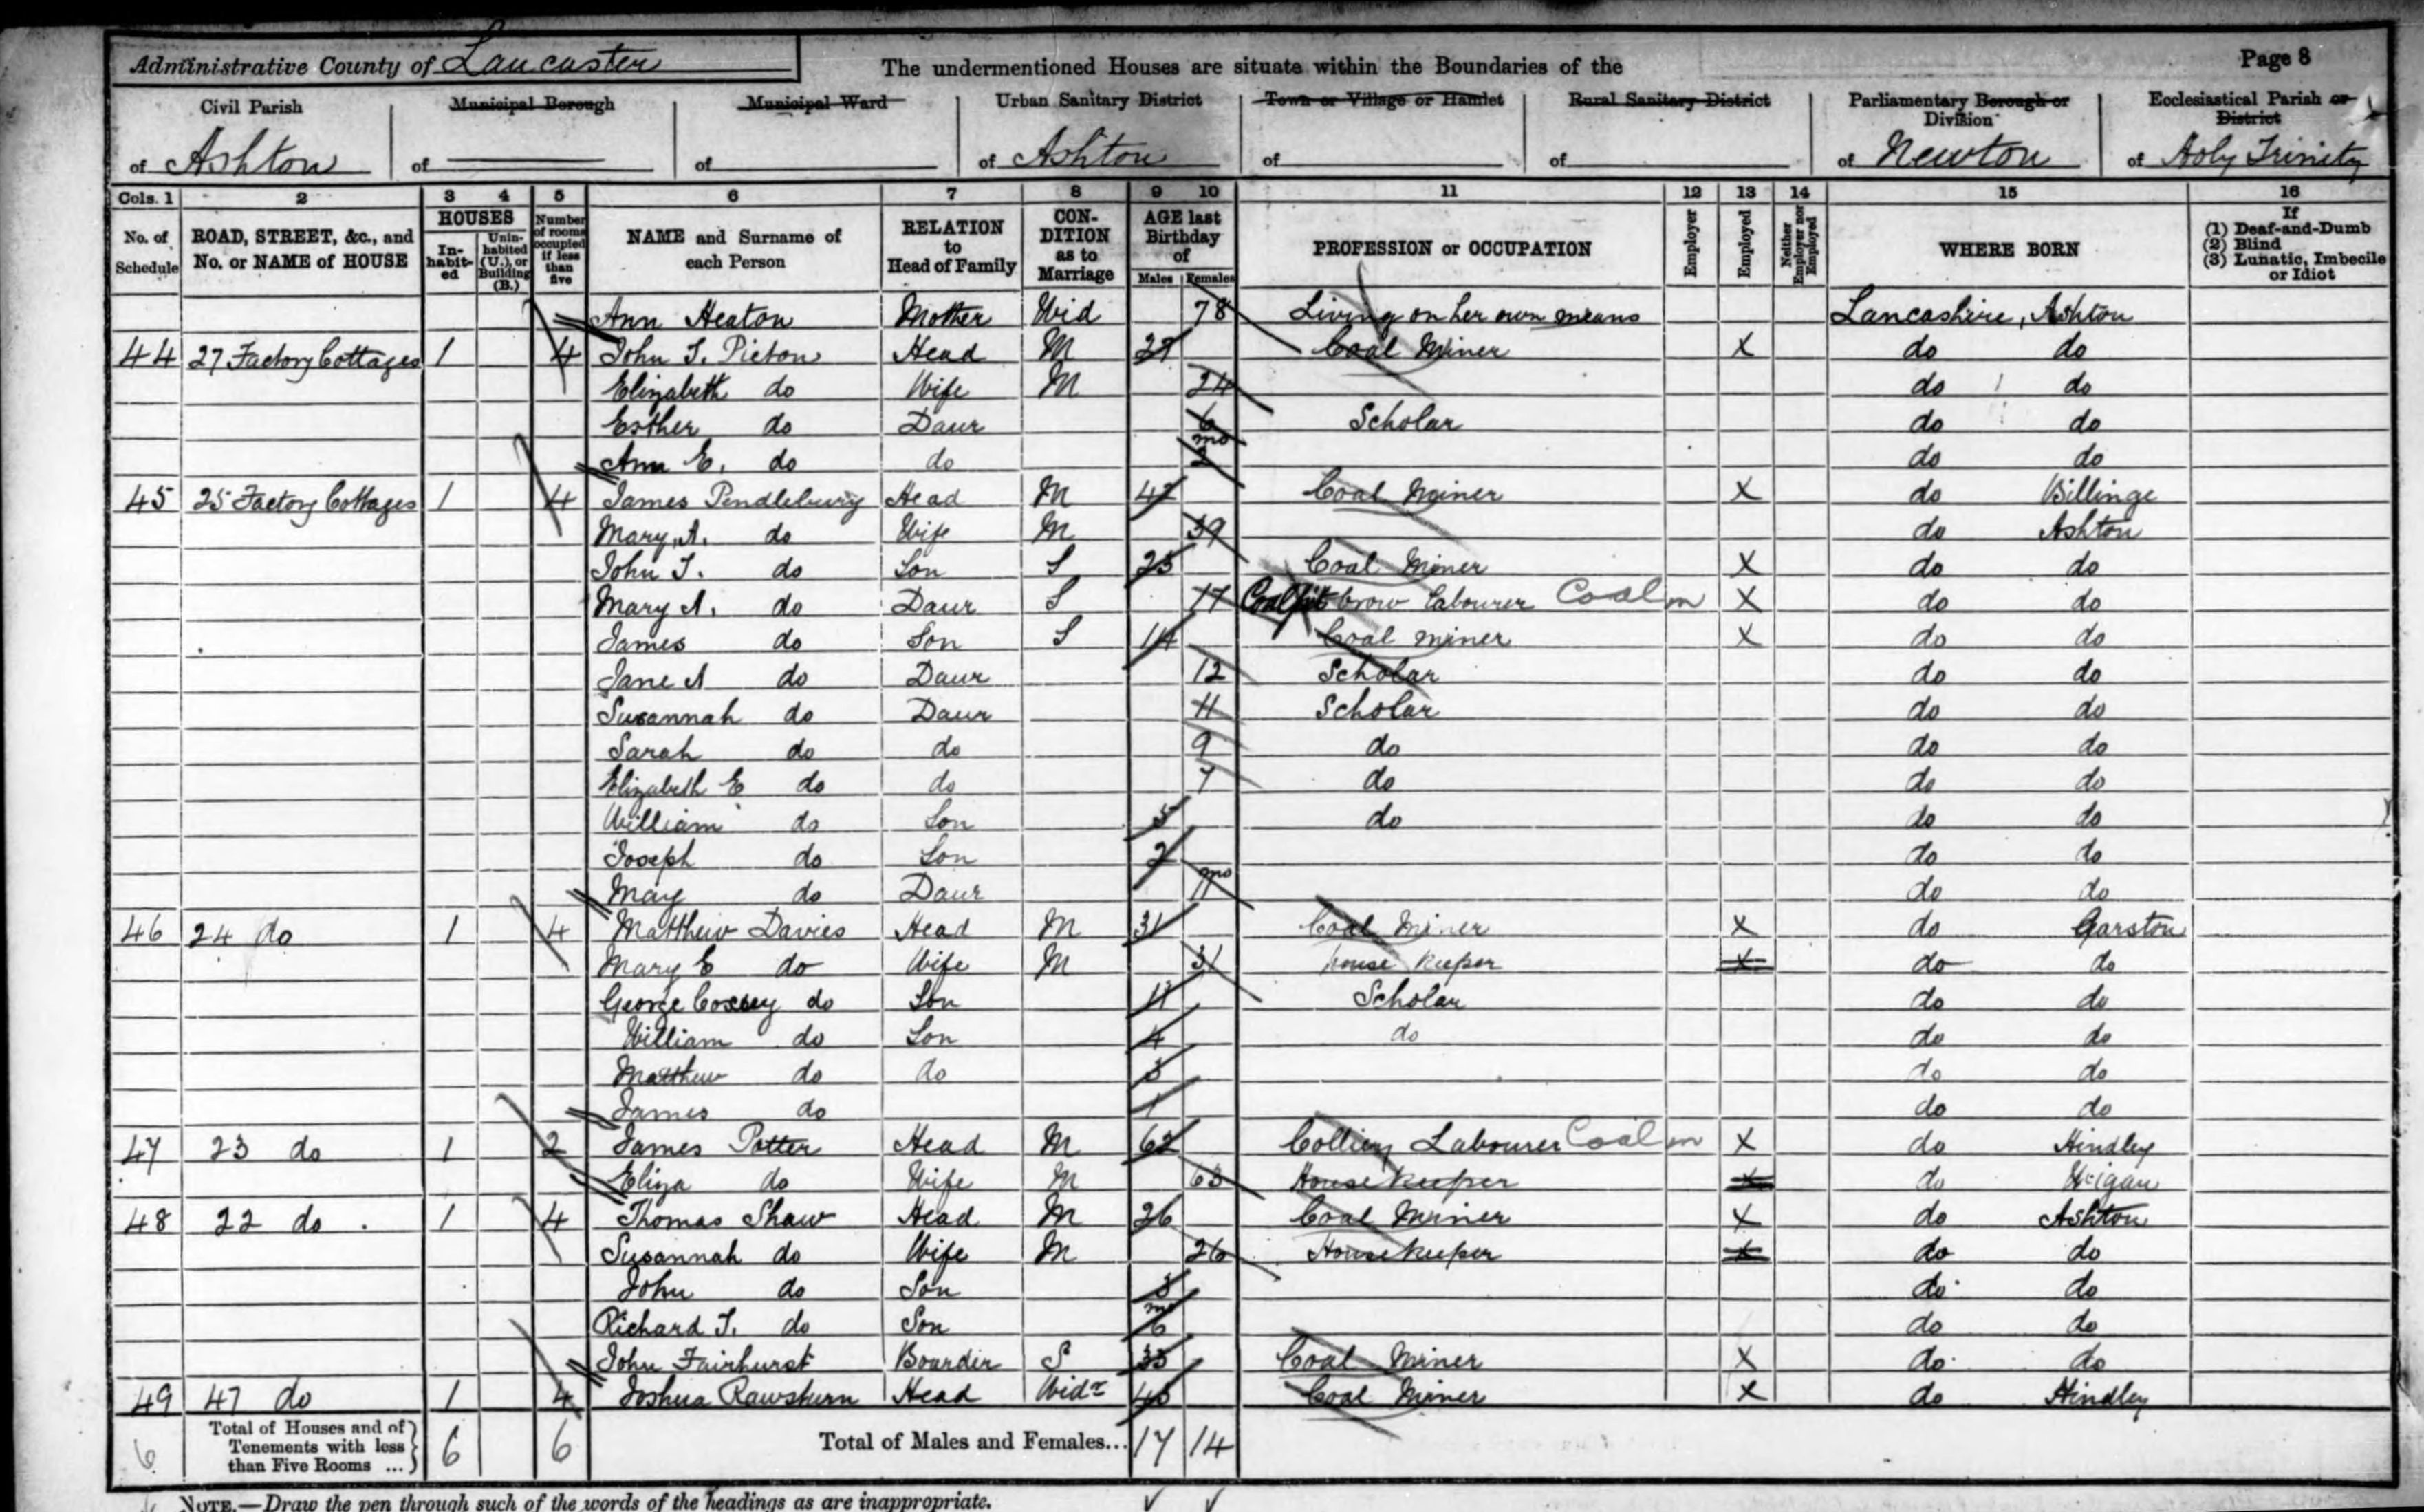 Administrative County of Lancaster The undermentioned Houses are situate within the Boundaries of the Page 8
Civil Parish Municipal Borough Municipal Ward Urban Sanitary District Town or Village or Hamlet Rural Sanitary District Parliamentary Borough or Division Ecclesiastical Parish or District
of Ashton of of of Ashton of of of Newton of Holy Trinity
Cols. 1 2 3 4 5 6 7 8 9 10 11 12 13 14 15 16
No. of Schedule ROAD, STREET, &c., and No. or NAME of HOUSE HOUSES Inhabited Uninhabited (U.), or Building (B.) Number of rooms occupied if less than five NAME and Surname of each Person RELATION to Head of Family CONDITION as to Marriage AGE last Birthday of Males Females PROFESSION or OCCUPATION Employer Employed Neither Employer nor Employed WHERE BORN If (1) Deaf-and-Dumb (2) Blind (3) Lunatic, Imbecile or Idiot
Ann Heaton Mother Wid 78 Living on her own means Lancashire, Ashton
44 27 Factory Cottages 1 4 John T. Picton Head M Coal Miner X do do
Elizabeth do Wife M 24 do do
Esther do Daur 6 Scholar do do
Ann E. do do mo do do
45 25 Factory Cottages 1 4 James Pendlebury Head M 42 Coal Miner X do Billinge
Mary A. do Wife M 39 do Ashton
John T. do Son S 23 Coal Miner X do do
Mary A. do Daur S 17 Coal pit brow labourer Coal m X do do
James do Son S 14 Coal miner X do do
Jane A do Daur 12 Scholar do do
Susannah do Daur 11 Scholar do do
Sarah do do 9 do do do
Elizabeth E do do 7 do do do
William do Son 5 do do do
Joseph do Son 2 do do
May do Daur mo do do
46 24 do 1 4 Matthew Davies Head M 31 Coal Miner X do Garston
Mary E do Wife M 31 house keeper X do do
George do Son 11 Scholar do do
William do Son 4 do do do
Matthew do do 3 do do
James do 1 do do
47 23 do 1 2 James Potter Head M 62 Colliery Labourer Coal m X do Hindley
Eliza do Wife M 63 Housekeeper X do Wigan
48 22 do 1 4 Thomas Shaw Head M 26 Coal Miner X do Ashton
Susannah do Wife M 26 Housekeeper X do do
John do Son 3 do do
Richard T. do Son mo 6 do do
John Fairhurst Boarder S 33 Coal Miner X do do
49 47 do 1 4 Joshua Rawsthurn Head Widr Coal Miner X do Hindley
6 Total of Houses and of Tenements with less than Five Rooms ... 6 6 Total of Males and Females... 17 14
NOTE.—Draw the pen through such of the words of the headings as are inappropriate.